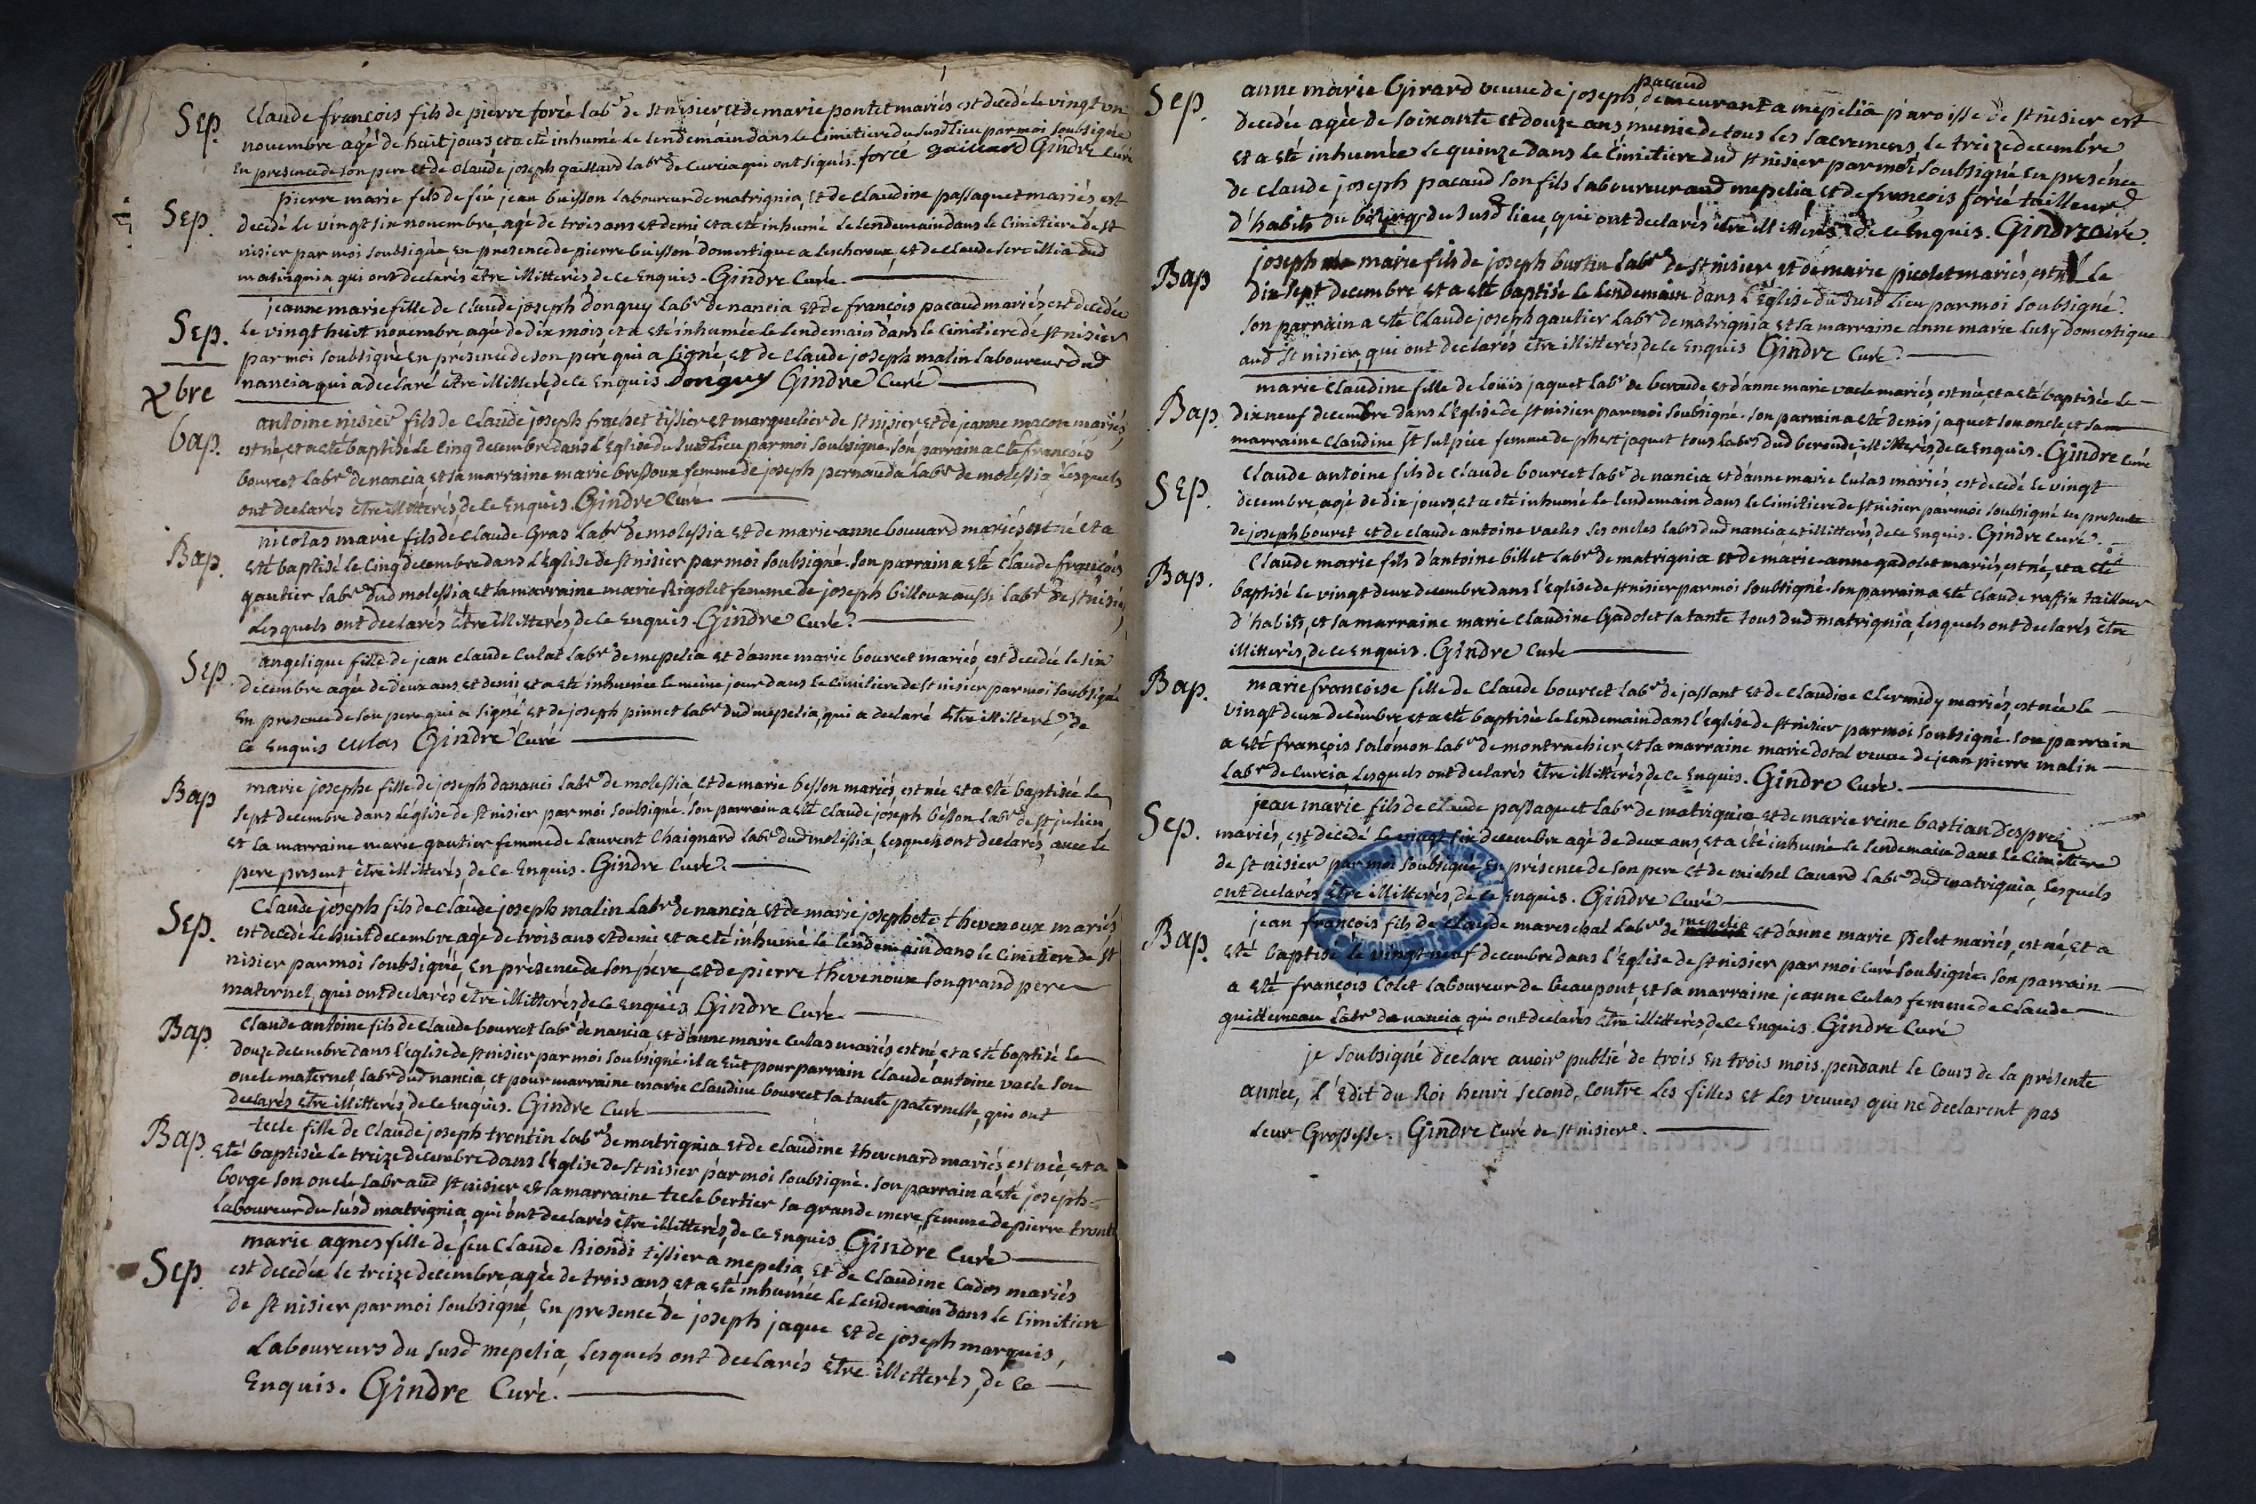 Sep. Claude françois fils de pierre foré lab.r de st nisier et de marie pontet mariés est decedé le vingt un
novembre agé de huit jours et a eté inhumé le lendemain dans le cimitiere du susd lieu par moi soubsigné
En presence de son pere et de claude joseph gaillard lab.r de curcia qui ont signés. foré gaillard Gindre Curé
Sep. pierre marie fils de fëu jean buisson laboureur de matrignia, et de claudine passaquet mariés est
decedé le vingt six novembre, agé de trois ans et demi et a eté inhumé le lendemain dans le cimitiere de st
nisier par moi soubsigné, en presence de pierre buisson domestique a lescheroux, et de claude sercillia dud
matrignia, qui ont declarés être illitterés, de ce Enquis. Gindre Curé.
Sep. jeanne marie fille de claude joseph donguy lab.r de nancia et de françois pacaud mariés est decedée
le vingt huit novembre agée de dix mois et a eté inhumée le lendemain dans le cimitiere de st nisier
par moi soubsigné en présence de son peré qui a signé, et de claude joseph malin laboureur dud
nancia qui a déclaré être illitteré, de ce Enquis. Donguy Gindre Curé
Xbre
bap. antoine nisier fils de claude joseph frachet tissier et marguelier de st nisier et de jeanne macon mariés,
est né, et a eté baptisé le cinq decembre dans l'Eglise du susd lieu par moi soubsigné. son parrain a eté françois
bourcet lab.r de nancia et sa marraine marie bressoux femme de joseph pernauda lab.r de molessia, lesquels
ont declarés être illitterés, de ce Enquis. Gindre Curé
Bap. nicolas marie fils de claude Gras lab.r de molessia et de marie-anne bouvard mariés est né et a
eté baptisé le cinq decembre dans l'Eglise de st nisier par moi soubsigné. son parrain a eté claude françois
gautier lab.r dud molessia, et sa marraine marie Rigolet femme de joseph billoux aussi lab.r de st nisier,
lesquels ont declarés être illitterés, de ce Enquis. Gindre Curé.
Sep. angelique fille de jean claude Culat lab.r de mepelia et d'anne marie bourcet mariés, est decedée le six
decembre agée de deux ans et demi et a eté inhumée le meme jour dans le cimitiere de st nisier par moi soubsigné
En presence de son pere qui a signé, et de joseph pinnet lab.r dud mepelia, qui a declaré être illitteré, de
ce Enquis culas Gindre Curé
Bap marie josephe fille de joseph dananci lab.r de molessia, et de marie besson mariés, est née et a eté baptisée le
sept decembre dans l'église de st nisier par moi soubsigné. son parrain a eté claude joseph bésson lab.r de st julien
et la marraine marie gautier femme de laurent chaignard lab.r dud molessia, lesquels ont declarés, avec le
pere present, être illitterés, de ce Enquis. Gindre Curé.
Sep. Claude joseph fils de claude joseph malin lab.r de nancia et de marie josephete thevenoux mariés
est decedé le huit decembre agé de trois ans et demi et a eté inhumé le lendemain dans le cimitiere de st
nisier par moi soubsigné, En présence de son pere, et de pierre thevenoux son grand pere
maternel, qui ont declarés être illitterés, de ce Enquis. Gindre Curé
Bap. claude antoine fils de claude bourcet lab.r de nancia, et d'anne marie culas mariés, est né, et a eté baptisé le
douze decembre dans l'eglise de st nisier par moi soubsigné : il a eut pour parrain claude antoine vacle son
oncle maternel, lab.r dud nancia, et pour marraine marie claudine bourcet sa tante paternelle, qui ont
declarés être illitterés, de ce Enquis. Gindre Curé
Bap. tecle fille de claude joseph trontin lab.r de matrignia et de claudine thevenard mariés, est née, et a
eté baptisée le treize decembre dans l'église de st nisier par moi soubsigné. son parrain a eté joseph
borge son oncle labr aud st nisier et sa marraine tecle bertier sa grande mere femme de pierre tront
laboureur du susd matrignia, qui ont declarés être illitterés, de ce Enquis. Gindre Curé
Sep. marie agnes fille de feu claude Riondi tissier a mepelia, et de claudine cados mariés
est decedée le treize decembre, agée de trois ans, et a eté inhumée le lendemain dans le cimitiere
de st nisier par moi soubsigné, en presence de joseph jaque et de joseph marquis,
laboureurs du susd mepelia, lesquels ont declarés être illitterés, de ce
Enquis. Gindre Curé.
Sep. anne marie Girard veuve de joseph pacaud demeurant a mepelia paroisse de st nisier est
decedée agée de soixante et douze ans munie de tous les sacremens, le treize decembre
et a eté inhumée le quinze dans le cimitiere dud st nisier par moi soubsigné en presence
de claude joseph pacaud son fils laboureur aud mepelia, et de françois foré tailleur
d'habits du bourg du susd lieu, qui ont declarés être illitterés, de ce Enquis. Gindre Curé.
Bap joseph marie fils de joseph burtin lab.r de st nisier et de marie picolet mariés, est né le
dix sept decembre et a eté baptisé le lendemain dans l'Église du susd lieu par moi soubsigné.
son parrain a eté claude joseph gautier lab.r de matrignia, et sa marraine anne marie luty domestique
aud st nisier, qui ont declarés être illitterés, de ce Enquis Gindre Curé.
Bap. marie claudine fille de loüis jaquet lab.r de beraude et d'anne marie vacle mariés est née, et a eté baptisée le
dix neuf decembre dans l'Eglise de st nisier par moi soubsigné. son parrain a eté denis jaquet son oncle, et sa
marraine claudine st sulpice femme de phert jaquet tous lab.rs dud beraude, illitterés, de ce Enquis. Gindre Curé
Sep. claude antoine fils de claude bourcet lab.r de nancia et d'anne marie culas mariés, est decedé le vingt
decembre agé de dix jours, et a eté inhumé le lendemain dans le cimitiere de st nisier par moi soubsigné en presence
de joseph bourcet et de claude antoine vacles ses oncles lab.rs dud nancia, et illitterés, de ce Enquis. Gindre Curé.
Bap. Claude marie fils d'antoine billet lab.r de matrignia et de marie-anne gadolet mariés, est né, et a eté
baptisé le vingt deux decembre dans l'église de st nisier par moi soubsigné. son parrain a eté claude raffin tailleur
d'habits, et sa marraine marie claudine Gadolet sa tante tous dud matrignia, lesquels ont declarés être
illitterés, de ce Enquis. Gindre Curé
Bap. marie françoise fille de claude bourcet lab.r de jassant et de claudine clermidy mariés, est née le
vingt deux decembre et a eté baptisée le lendemain dans l'eglise de st nisier par moi soubsigné. son parrain
a eté françois salomon lab.r de montrachier, et sa marraine marie dotal veuve de jean pierre malin
lab.r de curcia, lesquels ont declarés être illitterés, de ce Enquis. Gindre Curé.
Sep. jean marie fils de claude passaquet lab.r de matrignia et de marie reine bastian desprei
mariés, est decedé le vingt six decembre agé de deux ans, et a eté inhumé le lendemain dans le cimitiere
de st nisier par moi soubsigné, en présence de son pere et de michel cavard lab.r dud matrignia, lesquels
ont declarés être illitterés, de ce Enquis. Gindre Curé
Bap. jean françois fils de claude mareschal lab.r de mepelia et d'anne marie pelet mariés, est né, et a
eté baptisé le vingt neuf decembre dans l'Eglise de st nisier par moi curé soubsigné. son parrain
a eté françois Colet laboureur de beaupont, et sa marraine jeanne culas femme de claude
quitterneau lab.r de nancia, qui ont declarés être illitterés, de ce Enquis. Gindre Curé
je soubsigné declare avoir publié de trois en trois mois, pendant le cours de la présente
année, l'Edit du Roi henri second, contre les filles et les veuves qui ne declarent pas
leur Grossesse. Gindre Curé de st nisier.